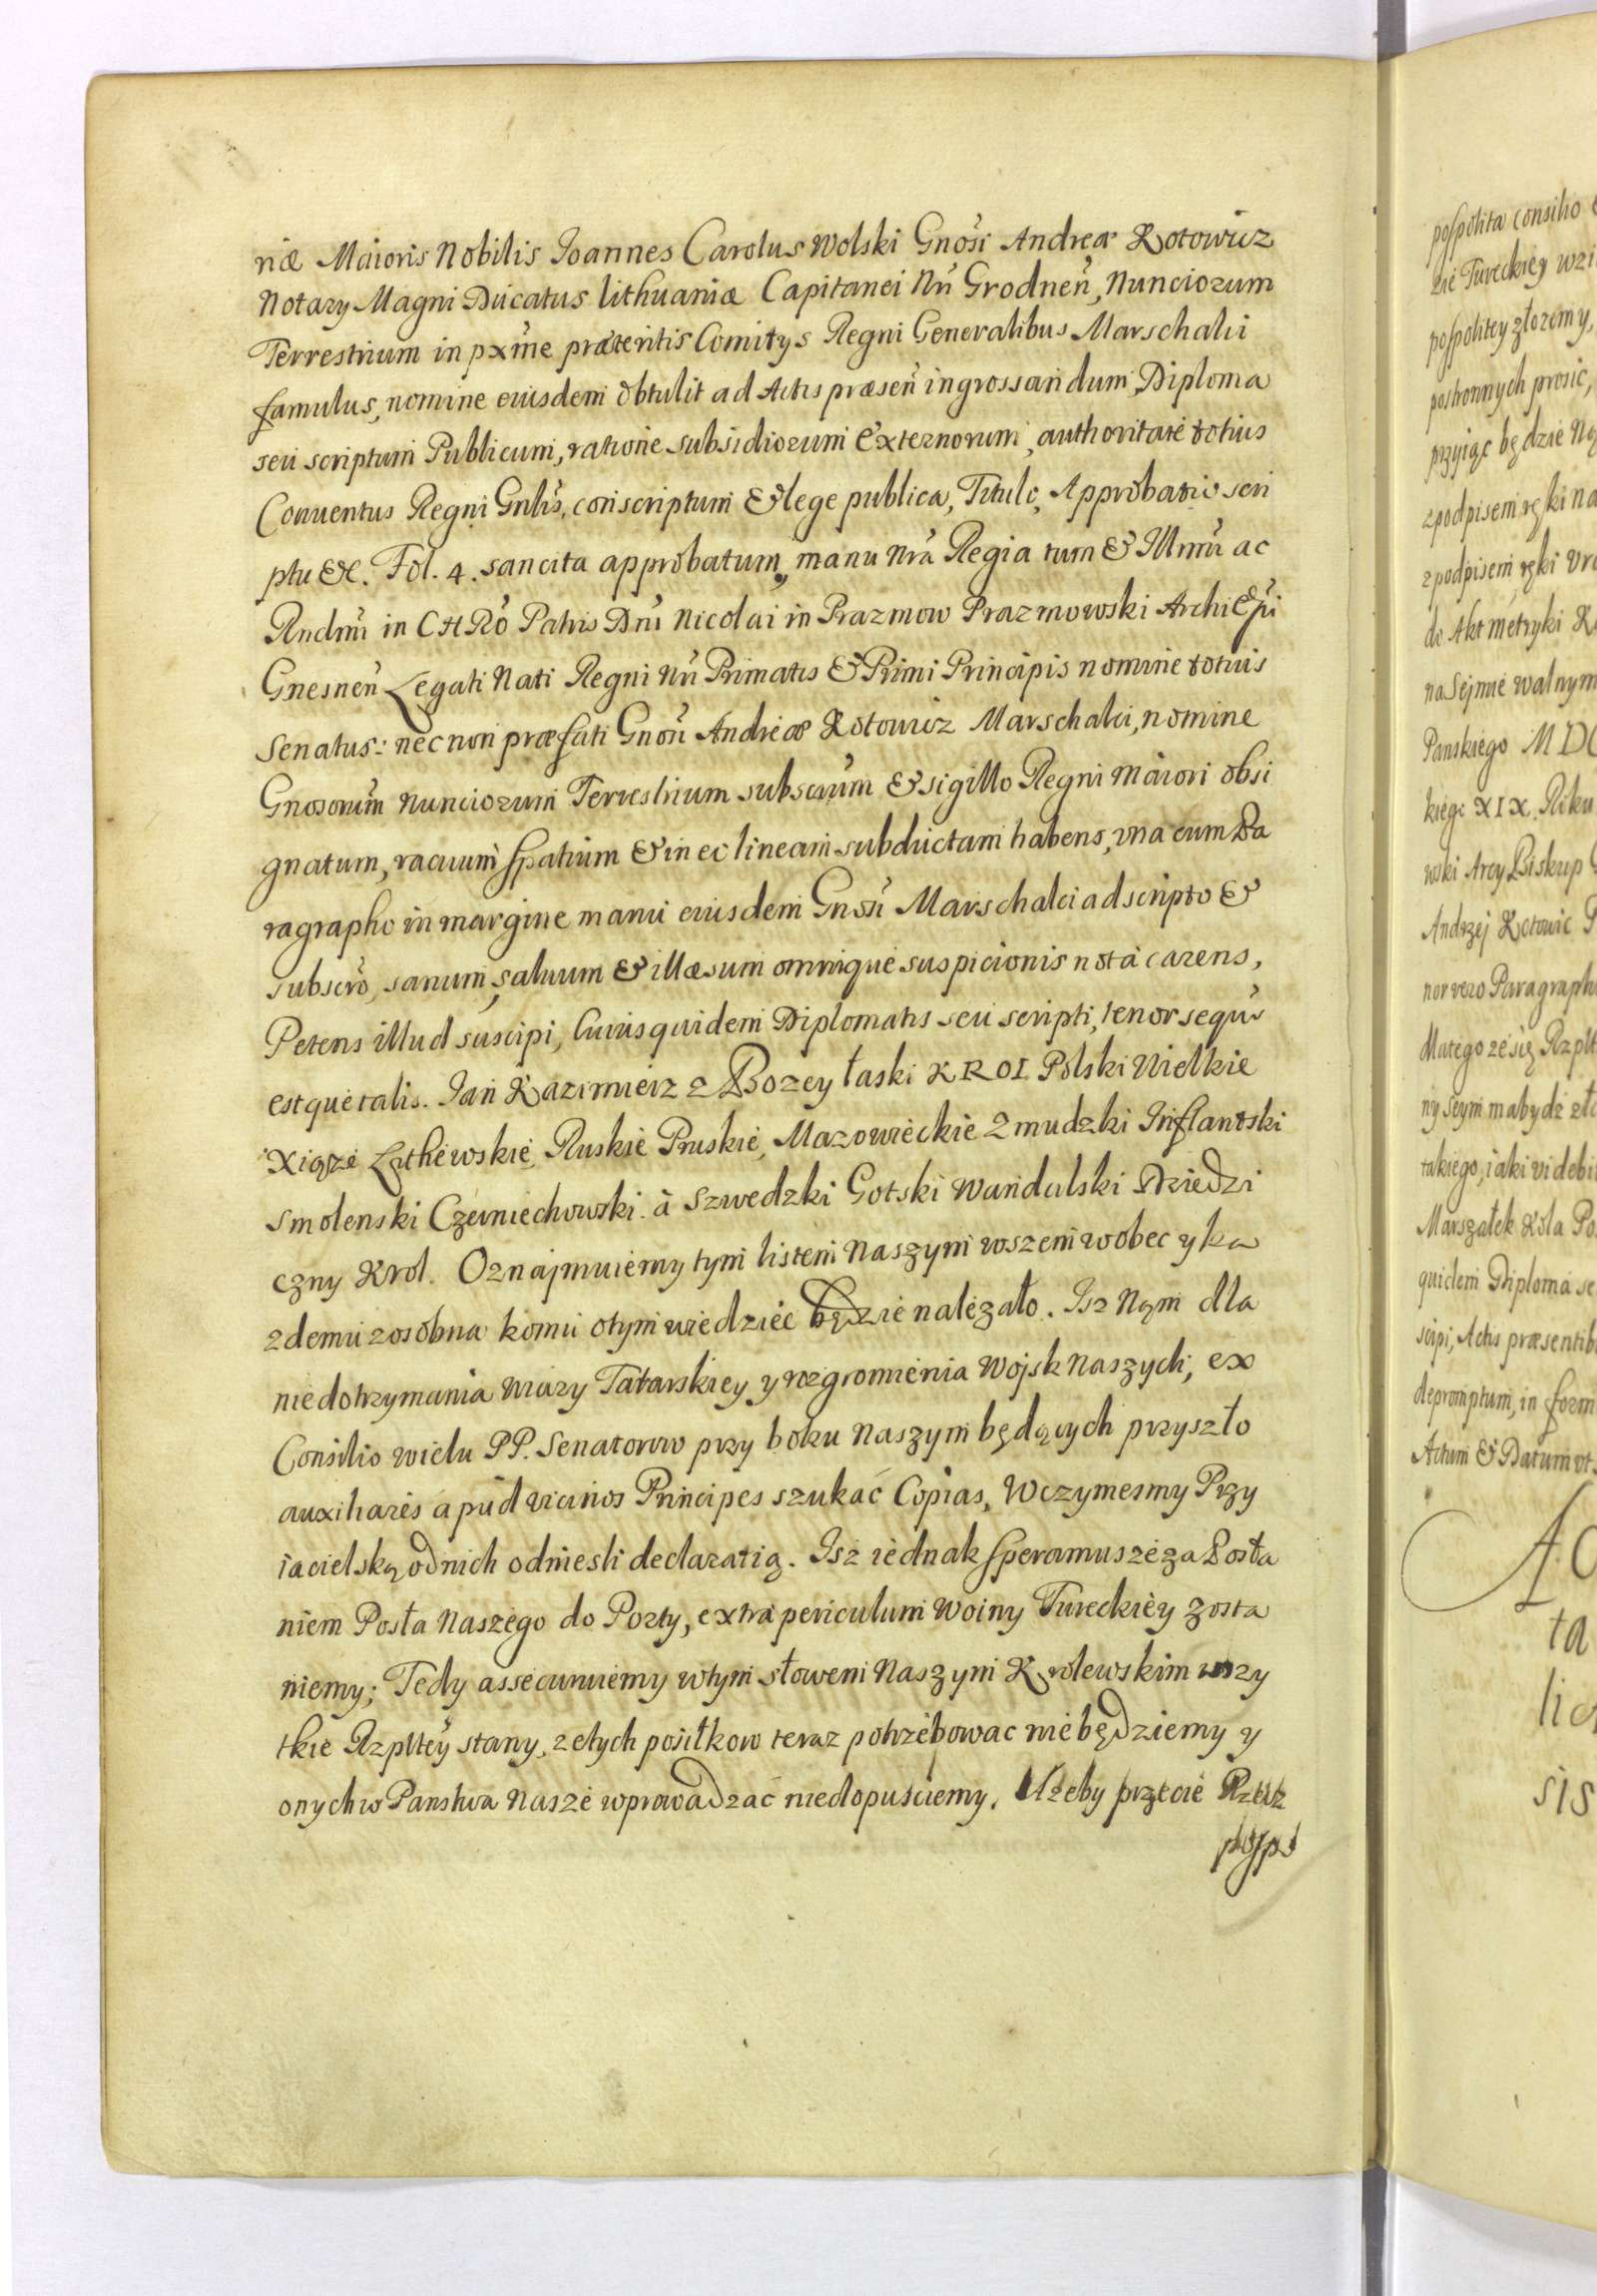 niæ Maioris Nobilis Joannes Carolus Wolski Gnosi Andreæ Kotowicz
Notary Magni Ducatus Lithuaniæ Capitanei Nri Grodneñ, Nunciorum
Terrestrium in pxime præteritis Comitys Regni Generalibus Marschalci
famulus, nomine eiusdem obtulit ad Actis præseñ ingrossandum Diploma
seu scriptum Publicum, ratione subsidiorum Externorum, authoritate totius
Conuentus Regni Gnlis, conscriptum & lege publica, Titulo, Approbatio scri
ptu &c. Fol. 4. sancita approbatum, manu Nra Regia tum & Illmi ac
Rndmi in CHRO Patris Dni Nicolai in Prazmow Prazmowski ArchiEpi
Gnesneñ Legati Nati Regni Nri Primatis & Primi Principis nomine totius
Senatus: nec non præfati Gnosi Andreæ Kotowicz Marschalci, nomine
Gnosorum Nunciorum Terrestrium subscrium & sigillo Regni Maiori obsi
gnatum, vacuum spatium & in eo lineam subductam habens, vna cum Pa
ragrapho in margine manu eiusdem Gnosi Marschalci adscripto &
subscro, sanum, saluum & illæsum omnique suspicionis nota carens,
Petens illud suscipi, Cuius quidem Diplomatis seu scripti, tenor sequr
estque talis. Jan Kazimierz z Bozey łaski KROL Polski Wielkie
Xiąze Lithewskie, Ruskie Pruskie, Mazowieckie Zmudzki Inflantski
Smolenski Czerniechowski. à Szwedzki Gotski Wandalski Dziedzi
czny Krol. Oznajmuiemy tym listem Naszym wszem wobec y ka
zdemu zosobna komu otym wiedziec będzie nalezało. Isz Nąm dla
niedotrzymania wiary Tatarskiey y rozgromienia Wojsk Naszych, ex
Consilio wielu PP. Senatorow przy boku Naszym będących przyszło
auxiliares apud vicinos Principes szukać Copias, Wczymesmy Przy
iacielską odnich odniesli declaratią. Isz iednak speramus zeza Posła
niem Posła Naszego do Porty, extra periculum Woiny Tureckiey zosta
niemy; Tedy assecuruiemy wtym słowem Naszym Krolewskim wszy
tkie Rzpltey stany, zetych posiłkow teraz potrzebowac niebędziemy y
onych w Panstwa Nasze wprowadzać niedopusciemy. Azeby przecie Rzecz
pospo
pospolita consilio
zie Tureckiey wzi
pospolitey złozemy,
postronnych prosic,
przyiąc będzie Ną
zpodpisem ręki na
zpodpisem ręki Vro
do Akt metryki K
na Sejmie walnym
Panskiego MDC
kiego XIX. Roku
wski Arcy Biskup G
Andrzej Kotowic P
nor vero Paragraph
Dlatego ze się Rzplt
ny Seym ma bydz zło
takiego, iaki videbi
Marszałek Koła Po
quidem Diploma se
scipi, Actis præsentib
depromptum, in form
Actum & Datum vt
AC
ta
lic
sis